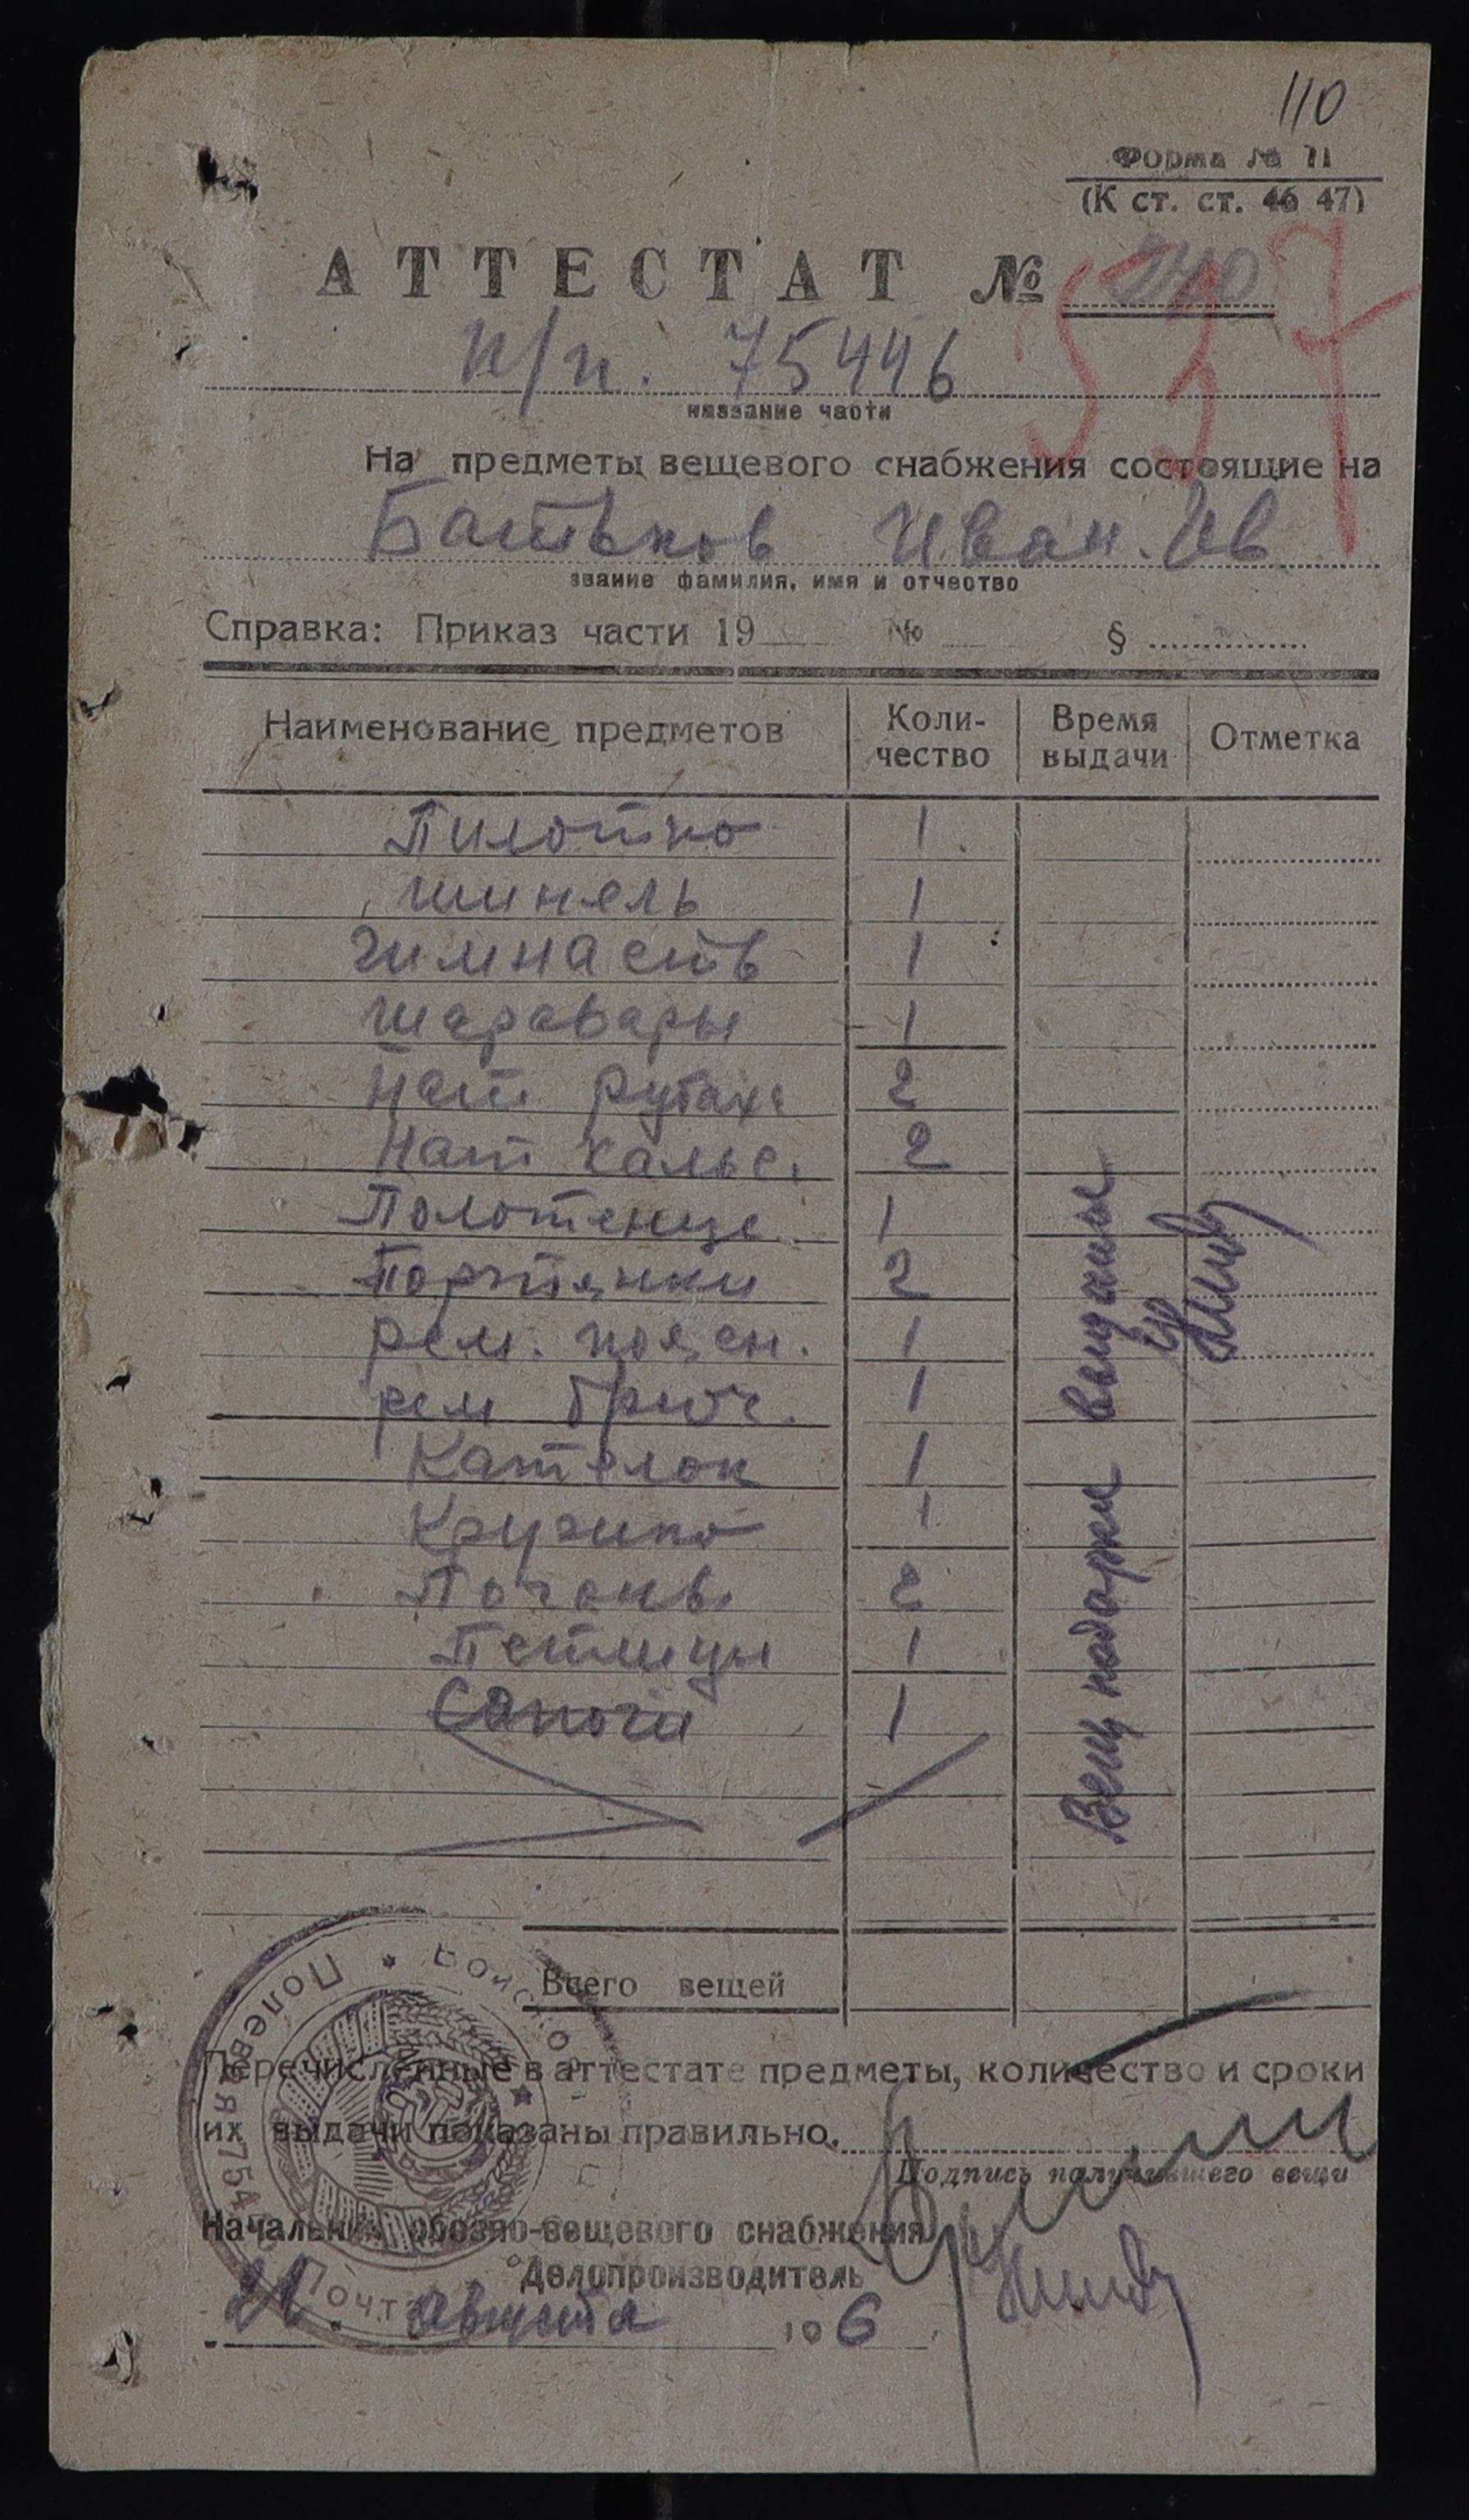 110
Форма № 11
(К ст. ст. 46 47)
АТТЕСТАТ № 240
537
п/п. 75446
название части
На предметы вещевого снабжения состоящие на
Батьков Иван. Ив
звание фамилия, имя и отчество
Справка: Приказ части 19 № §
Наименование предметов Коли-чество Время выдачи Отметка
Пилотка 1
шинель 1
гимнаств 1
шаравары 1
Нат рубах 2
Нат кальс. 2
Полотенце 1
Портянки 2
рем. поясн. 1
рем брюч. 1
Кателок 1
Кружка 1
Погоны 2
Петлицы 1
Сапоги 1
Вещ подарки выданы
Всего вещей
Перечисленные в аттестате предметы, количество и сроки
их выдачи показаны правильно.
Подпись получившего вещи
Начальник обозно-вещевого снабжения
Делопроизводитель
августа 19 6
Войско
Полевая Почта 754